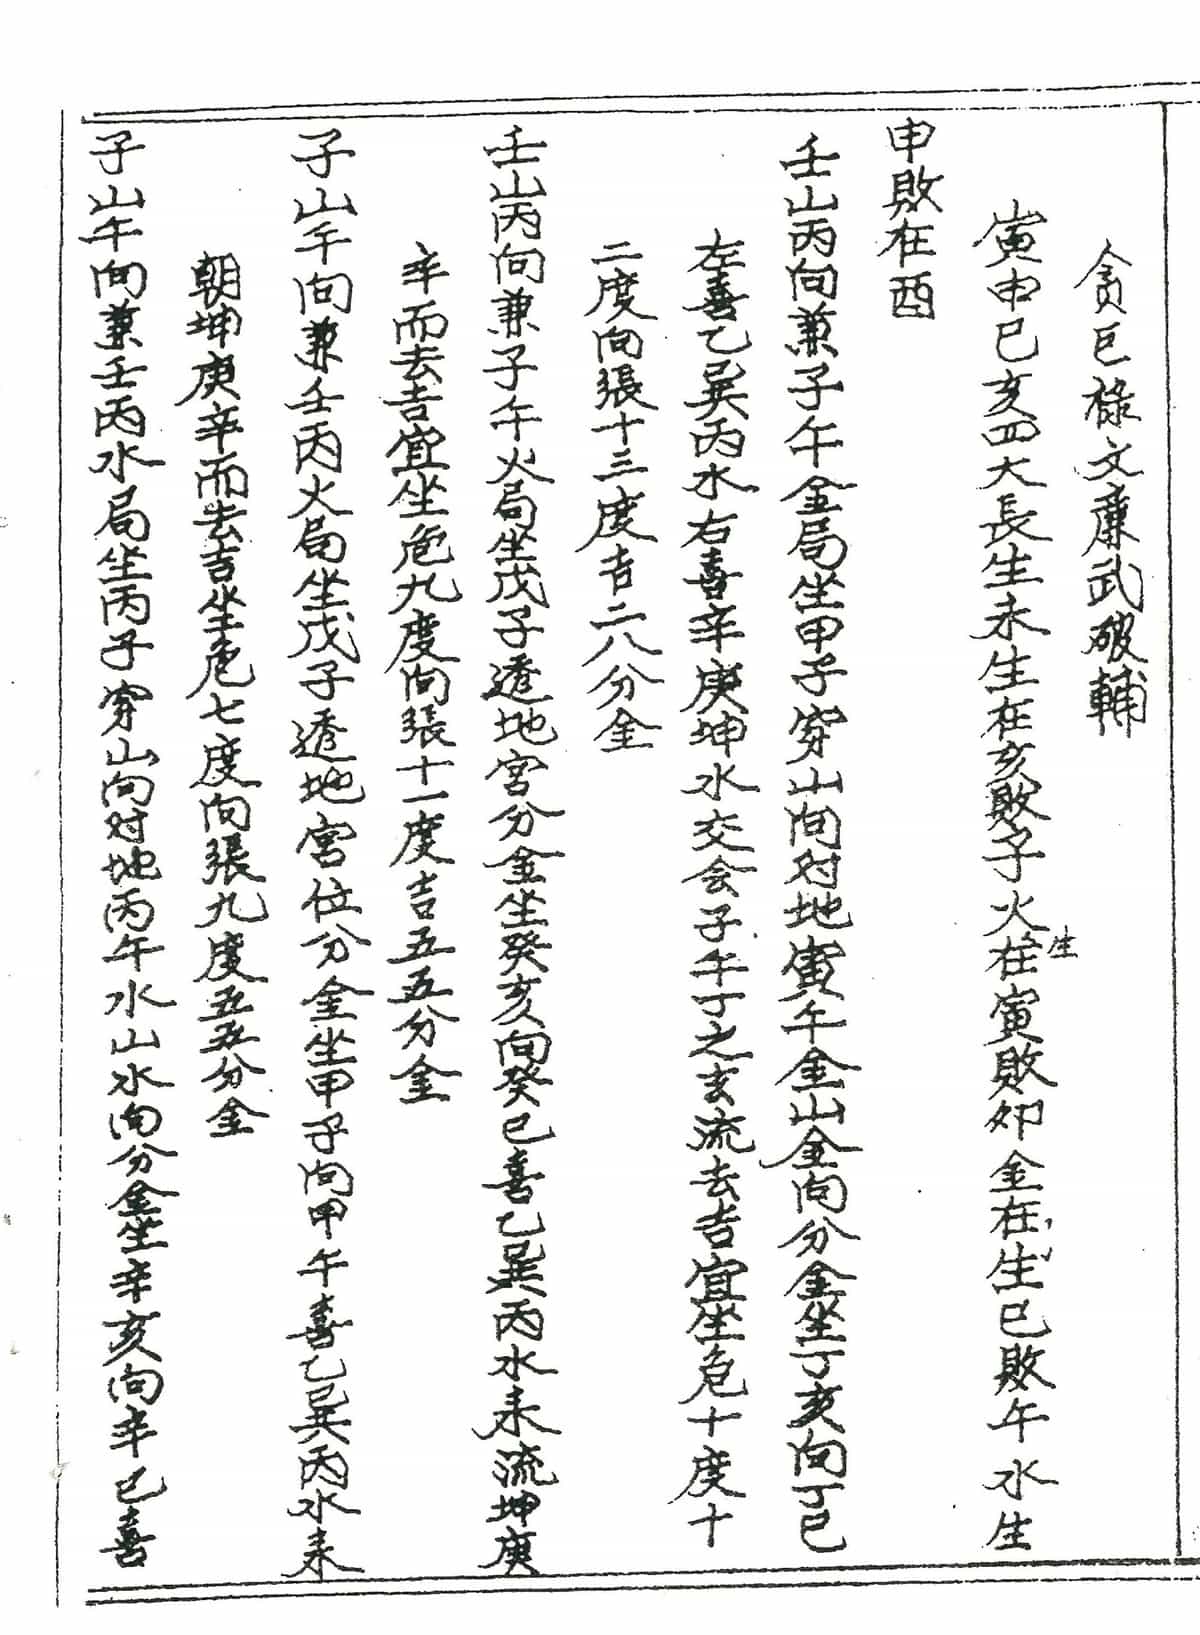 貪巨祿文廉武破輔
寅申巳亥四大長生木生在亥敗子火生在寅敗卯金在生巳敗午水生
申敗在酉
壬山丙向兼子午金局坐甲子穿山向对地寅午金山金向分金坐丁亥向丁巳
左喜乙巽丙水右喜辛庚坤水交会子午丁之亥流去吉宜坐危十度十
二度向張十三度吉二八分金
壬山丙向兼子午火局坐戊子透地宮分金坐癸亥向癸巳喜乙巽丙水来流坤庚
辛而去吉宜坐危九度向張十一度吉五五分金
子山午向兼壬丙火局坐戊子透地宮位分金坐甲子向甲午喜乙巽丙水来
朝坤庚辛而去吉坐危七度向張九度五五分金
子山午向兼壬丙水局坐丙子穿山向对地丙午水山水向分金坐辛亥向辛巳喜